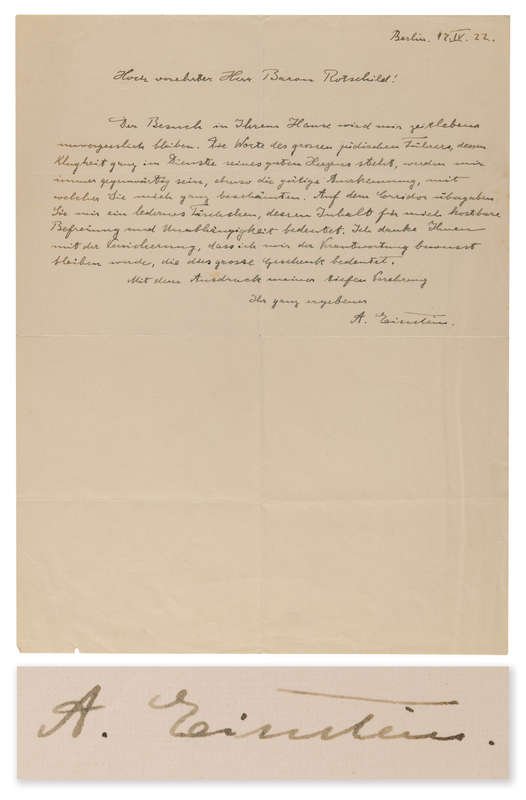 Berlin. 12 IX. 22.
Hoch verehrter Herr Baron Rotschild!
Der Besuch in Ihrem Hause wird mir zeitlebens
unvergesslich bleiben. Die Worte des grossen jüdischen Führers, dessen
Klugheit ganz im Dienste seines guten Herzens steht, werden mir
immer gegenwärtig sein, ebenso die gütige Anerkennung, mit
welcher Sie mich ganz beschämten. Auf dem Corridor übergaben
Sie mir ein ledernes Täschchen, dessen Inhalt für mich kostbare
Befreiung und Unabhängigkeit bedeutet. Ich danke Ihnen
mit der Versicherung, dass ich mir der Verantwortung bewusst
bleiben werde, die dies grosse Geschenk bedeutet.
Mit dem Ausdruck meiner tiefen Verehrung
Ihr ganz ergebener
A. Einstein.
A. Einstein.